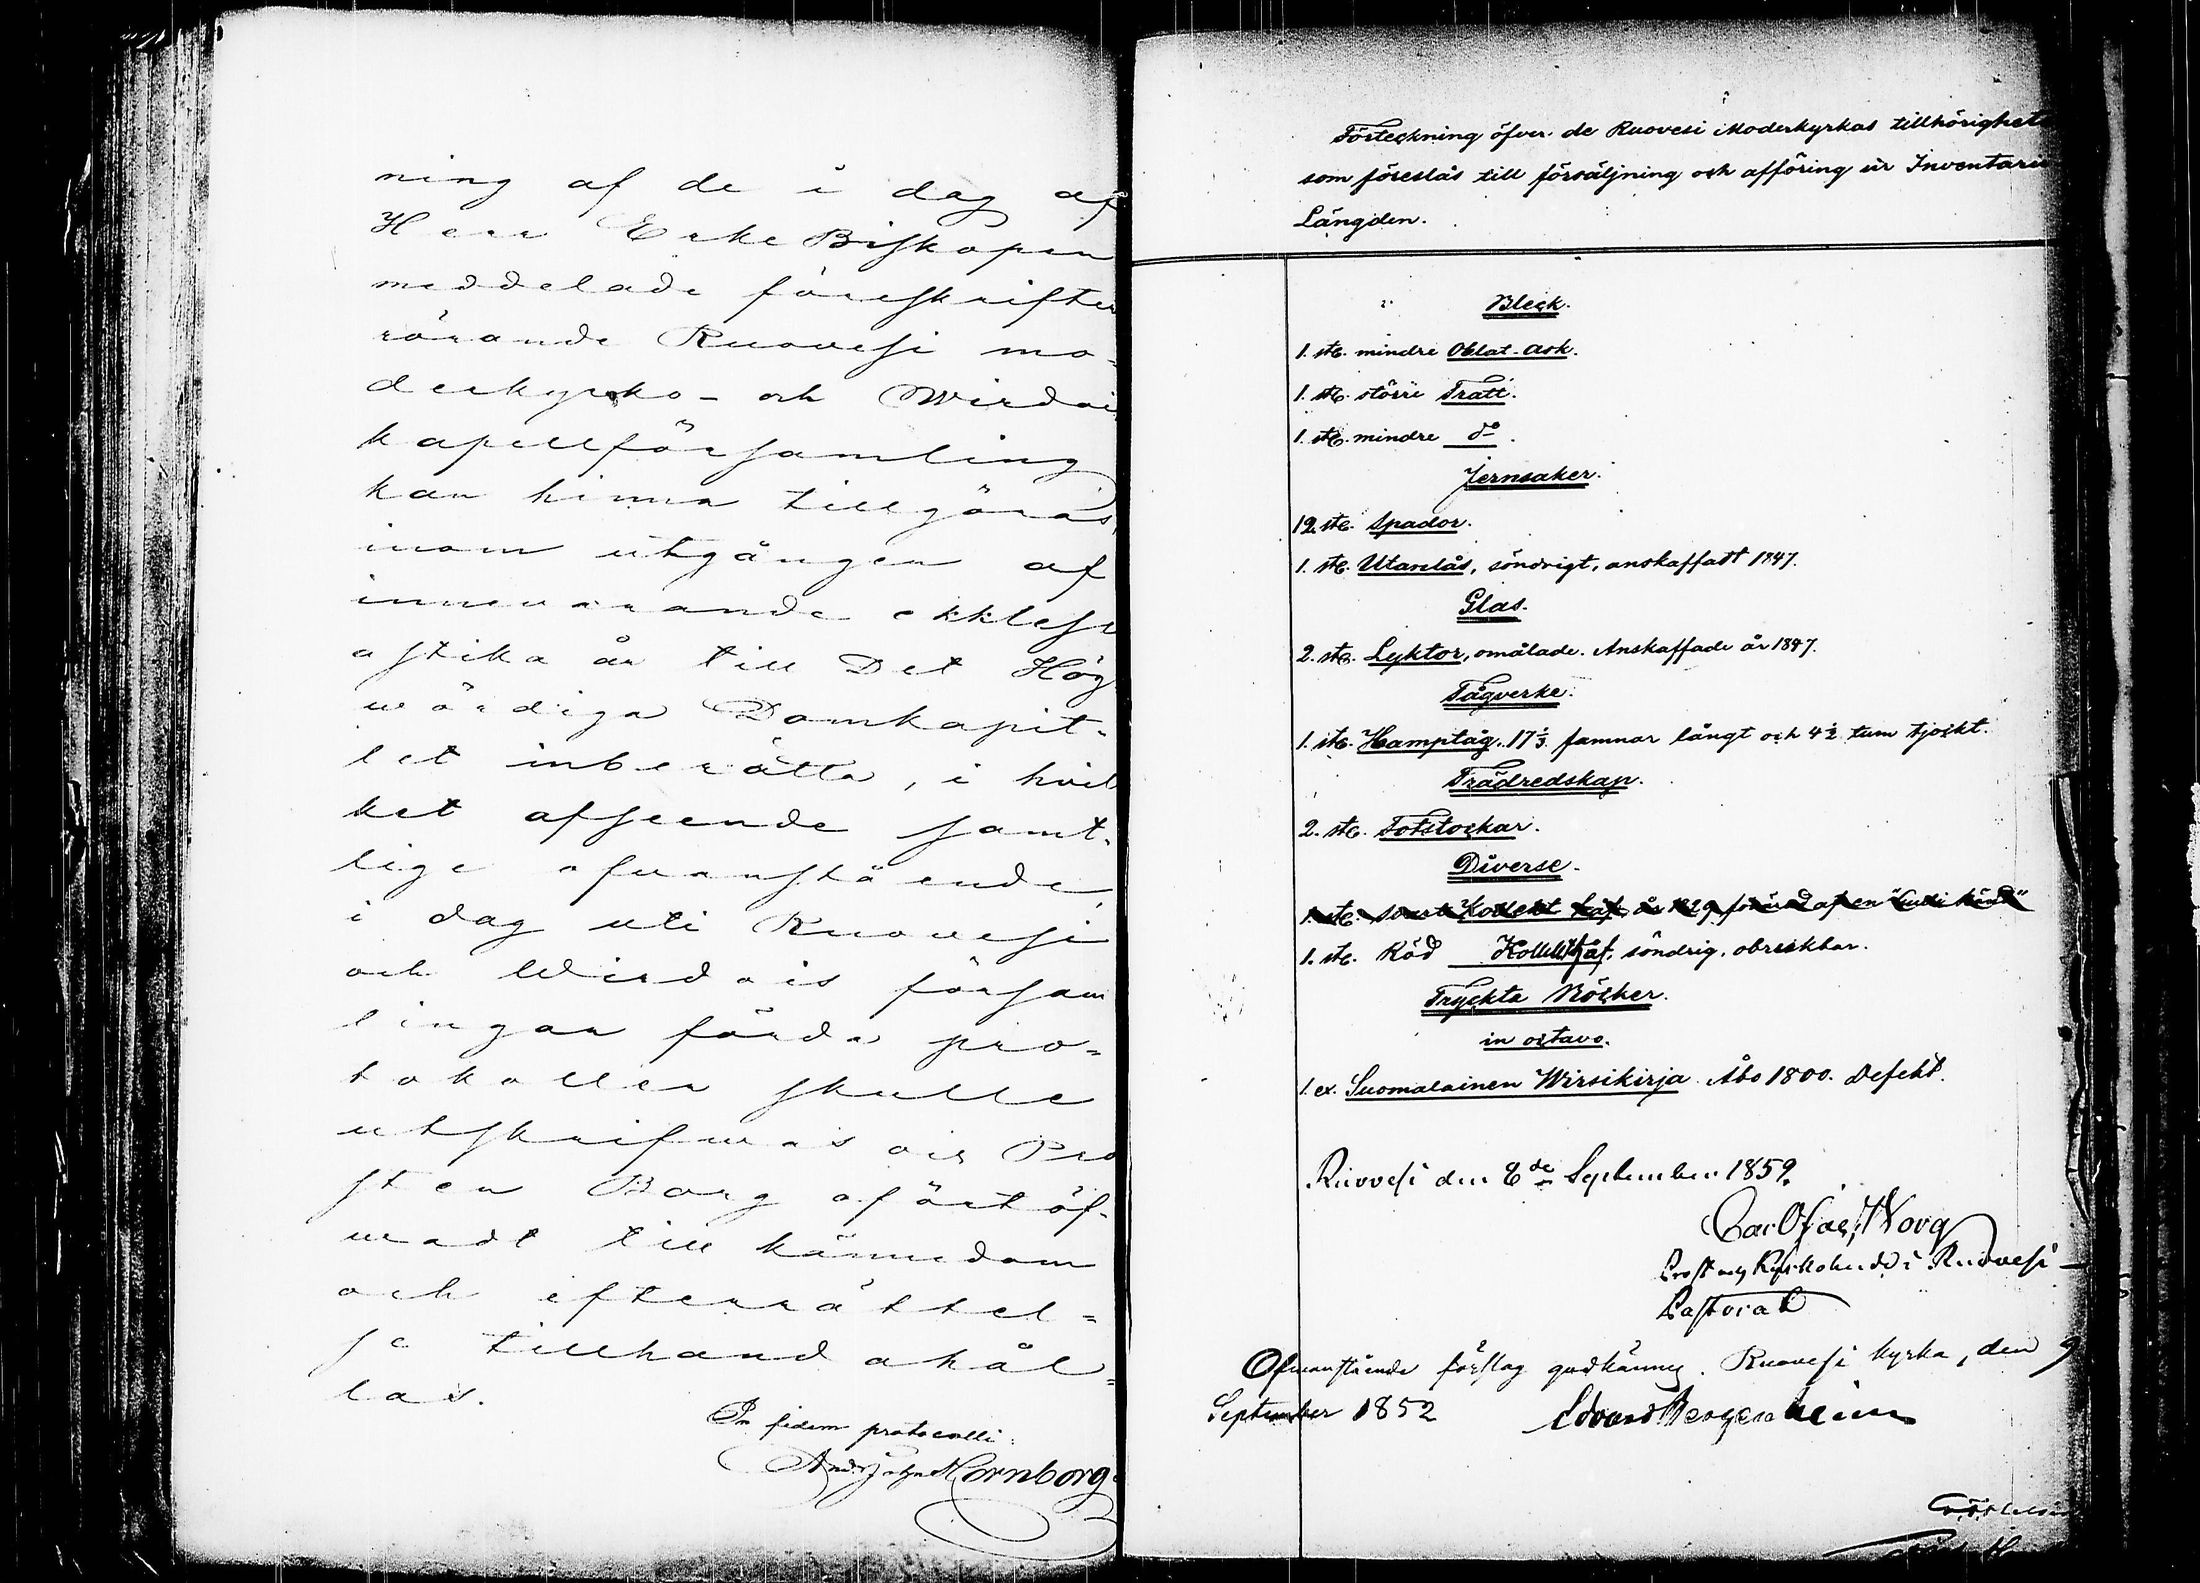 ning af de i dag af
Herr Erke Biskopen
meddelade föreskrifter
rörande Ruovesi mo-
derkyrko- och Wirdois
kapellförsamling
kan hinna tillgöras
inom utgången af
innevarande ekklesi
astika år till Det Hög
wördiga Domkapit-
let inberätta, i hvil
ket afseende samt-
lige ofvanstående,
i dag uti Ruovesi
och Wirdois försam
lingar förda pro-
tokoller skulle
utskrifwas och Pro
sten Borg oförtöf-
wadt till kännedom
och efterrättel-
se tillhandahål-
las.
In fidem protocolli:
And. Joh. Hornborg
Förteckning öfver de Ruovesi Moderkyrkas tillhörighete
som föreslås till försäljning och afföring ur Inventarie
Längden.
Bleck.
1. st. mindre Oblat-ask.
1. st. större Tratt.
1. st. mindre do.
Jernsaker.
12 st. Spador.
1. st. Utanlås, söndrigt, anskaffadt 1847.
Glas.
2. st. Lyktor, omålade. Anskaffade år 1847.
Tågverke.
1. st. Hamptåg. 17 1/3 famnar långt och 4 1/2 tum tjockt.
Trädredskap.
2. st. Fotstockar.
Diverse.
1. st. svart Kollekt haf år 1829 förärad af en
1. st. Röd Kollekt haf, söndrig, obrukbar.
Tryckta Böcker.
in octavo.
1. ex. Suomalainen Wirsikirja. Åbo 1800. Defekt.
Ruovesi den 8de September 1852.
Carl Borg
Prost och Kyrkoherde i Ruovesi
Pastorat
Ofvanstående förslag godkännes. Ruovesi kyrka, den 9
September 1852 Edvard Bergenheim